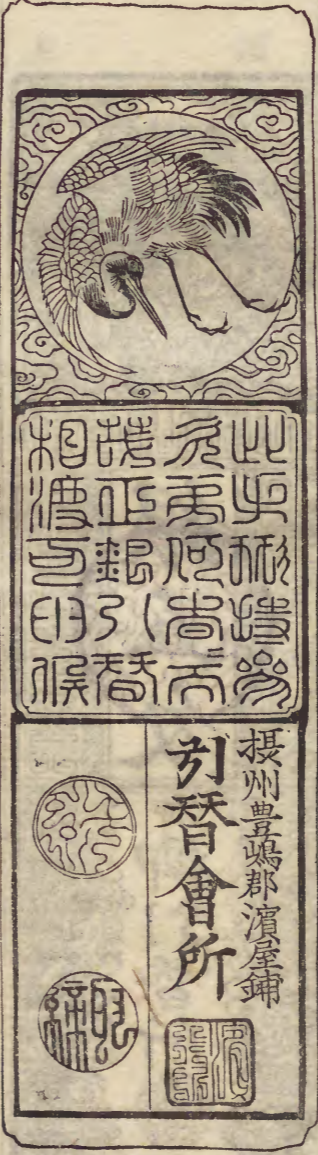 此手形持参
次第何時ニ而
茂正銀引替
相渡可申候
摂州豊嶋郡濱屋鋪
引替會所